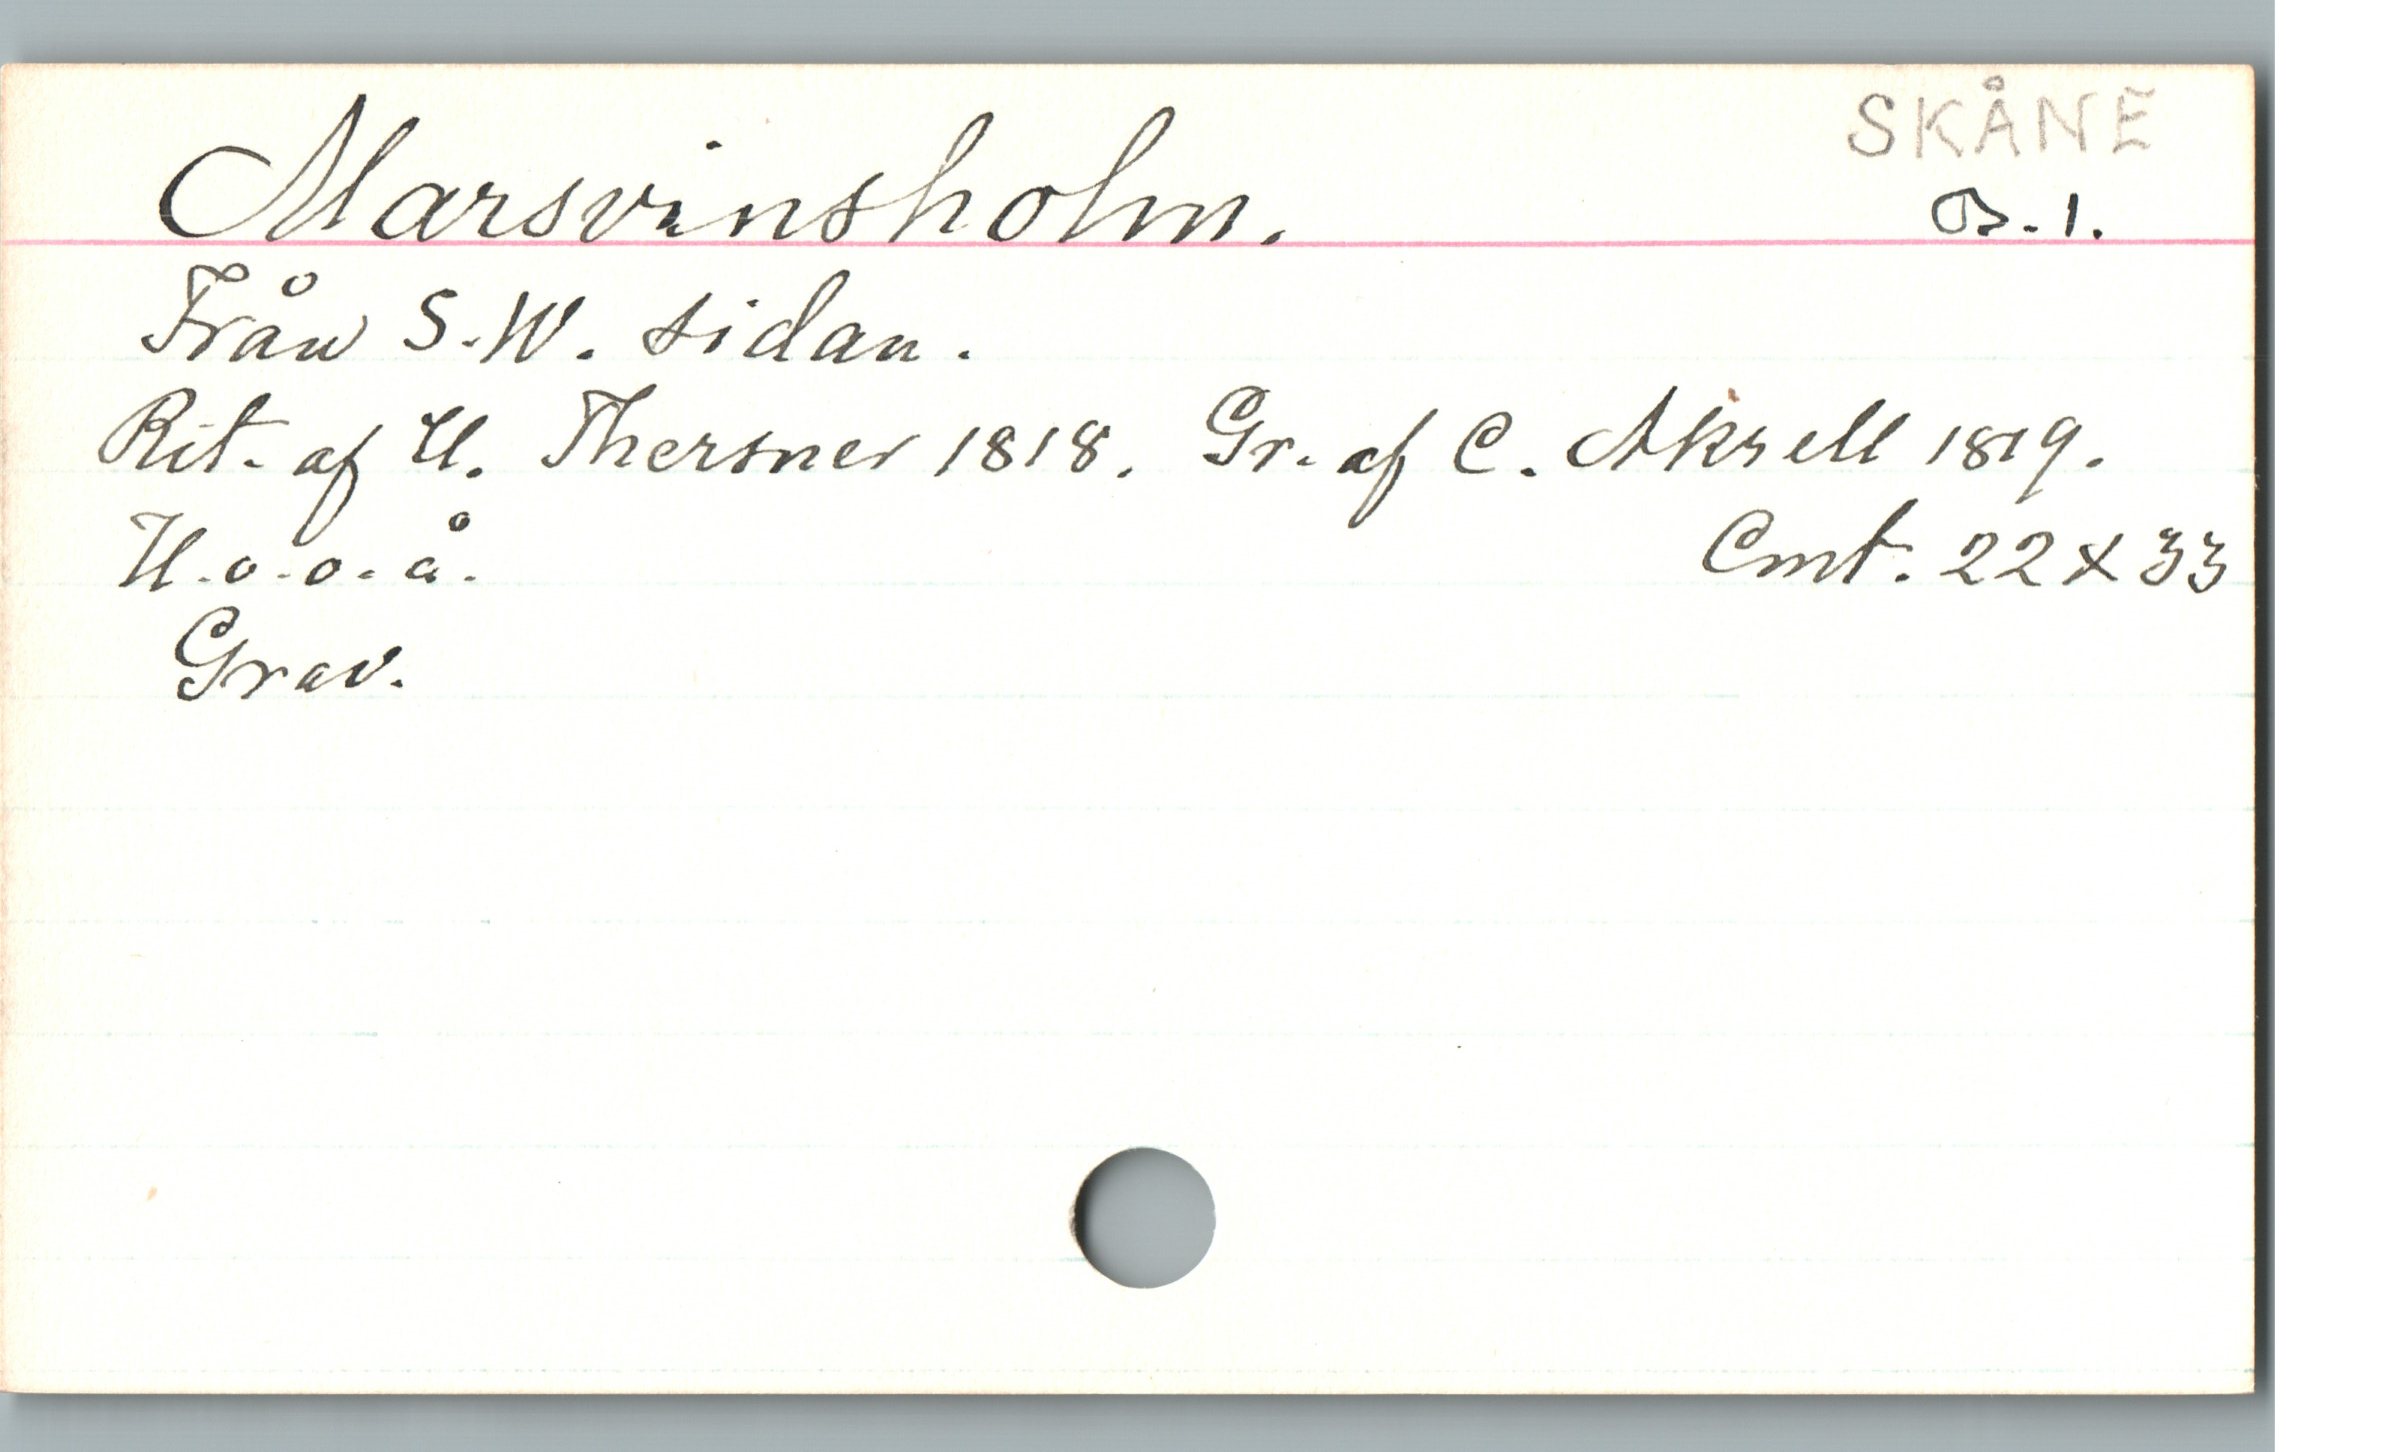 SKÅNE
Marsvinsholm. B.1.
Från S.W. sidan.
Rit. af U. Thersner 1818. Gr. af C. Aksell 1819.
U.o.o.å. Cmt. 22 x 33
Grav.